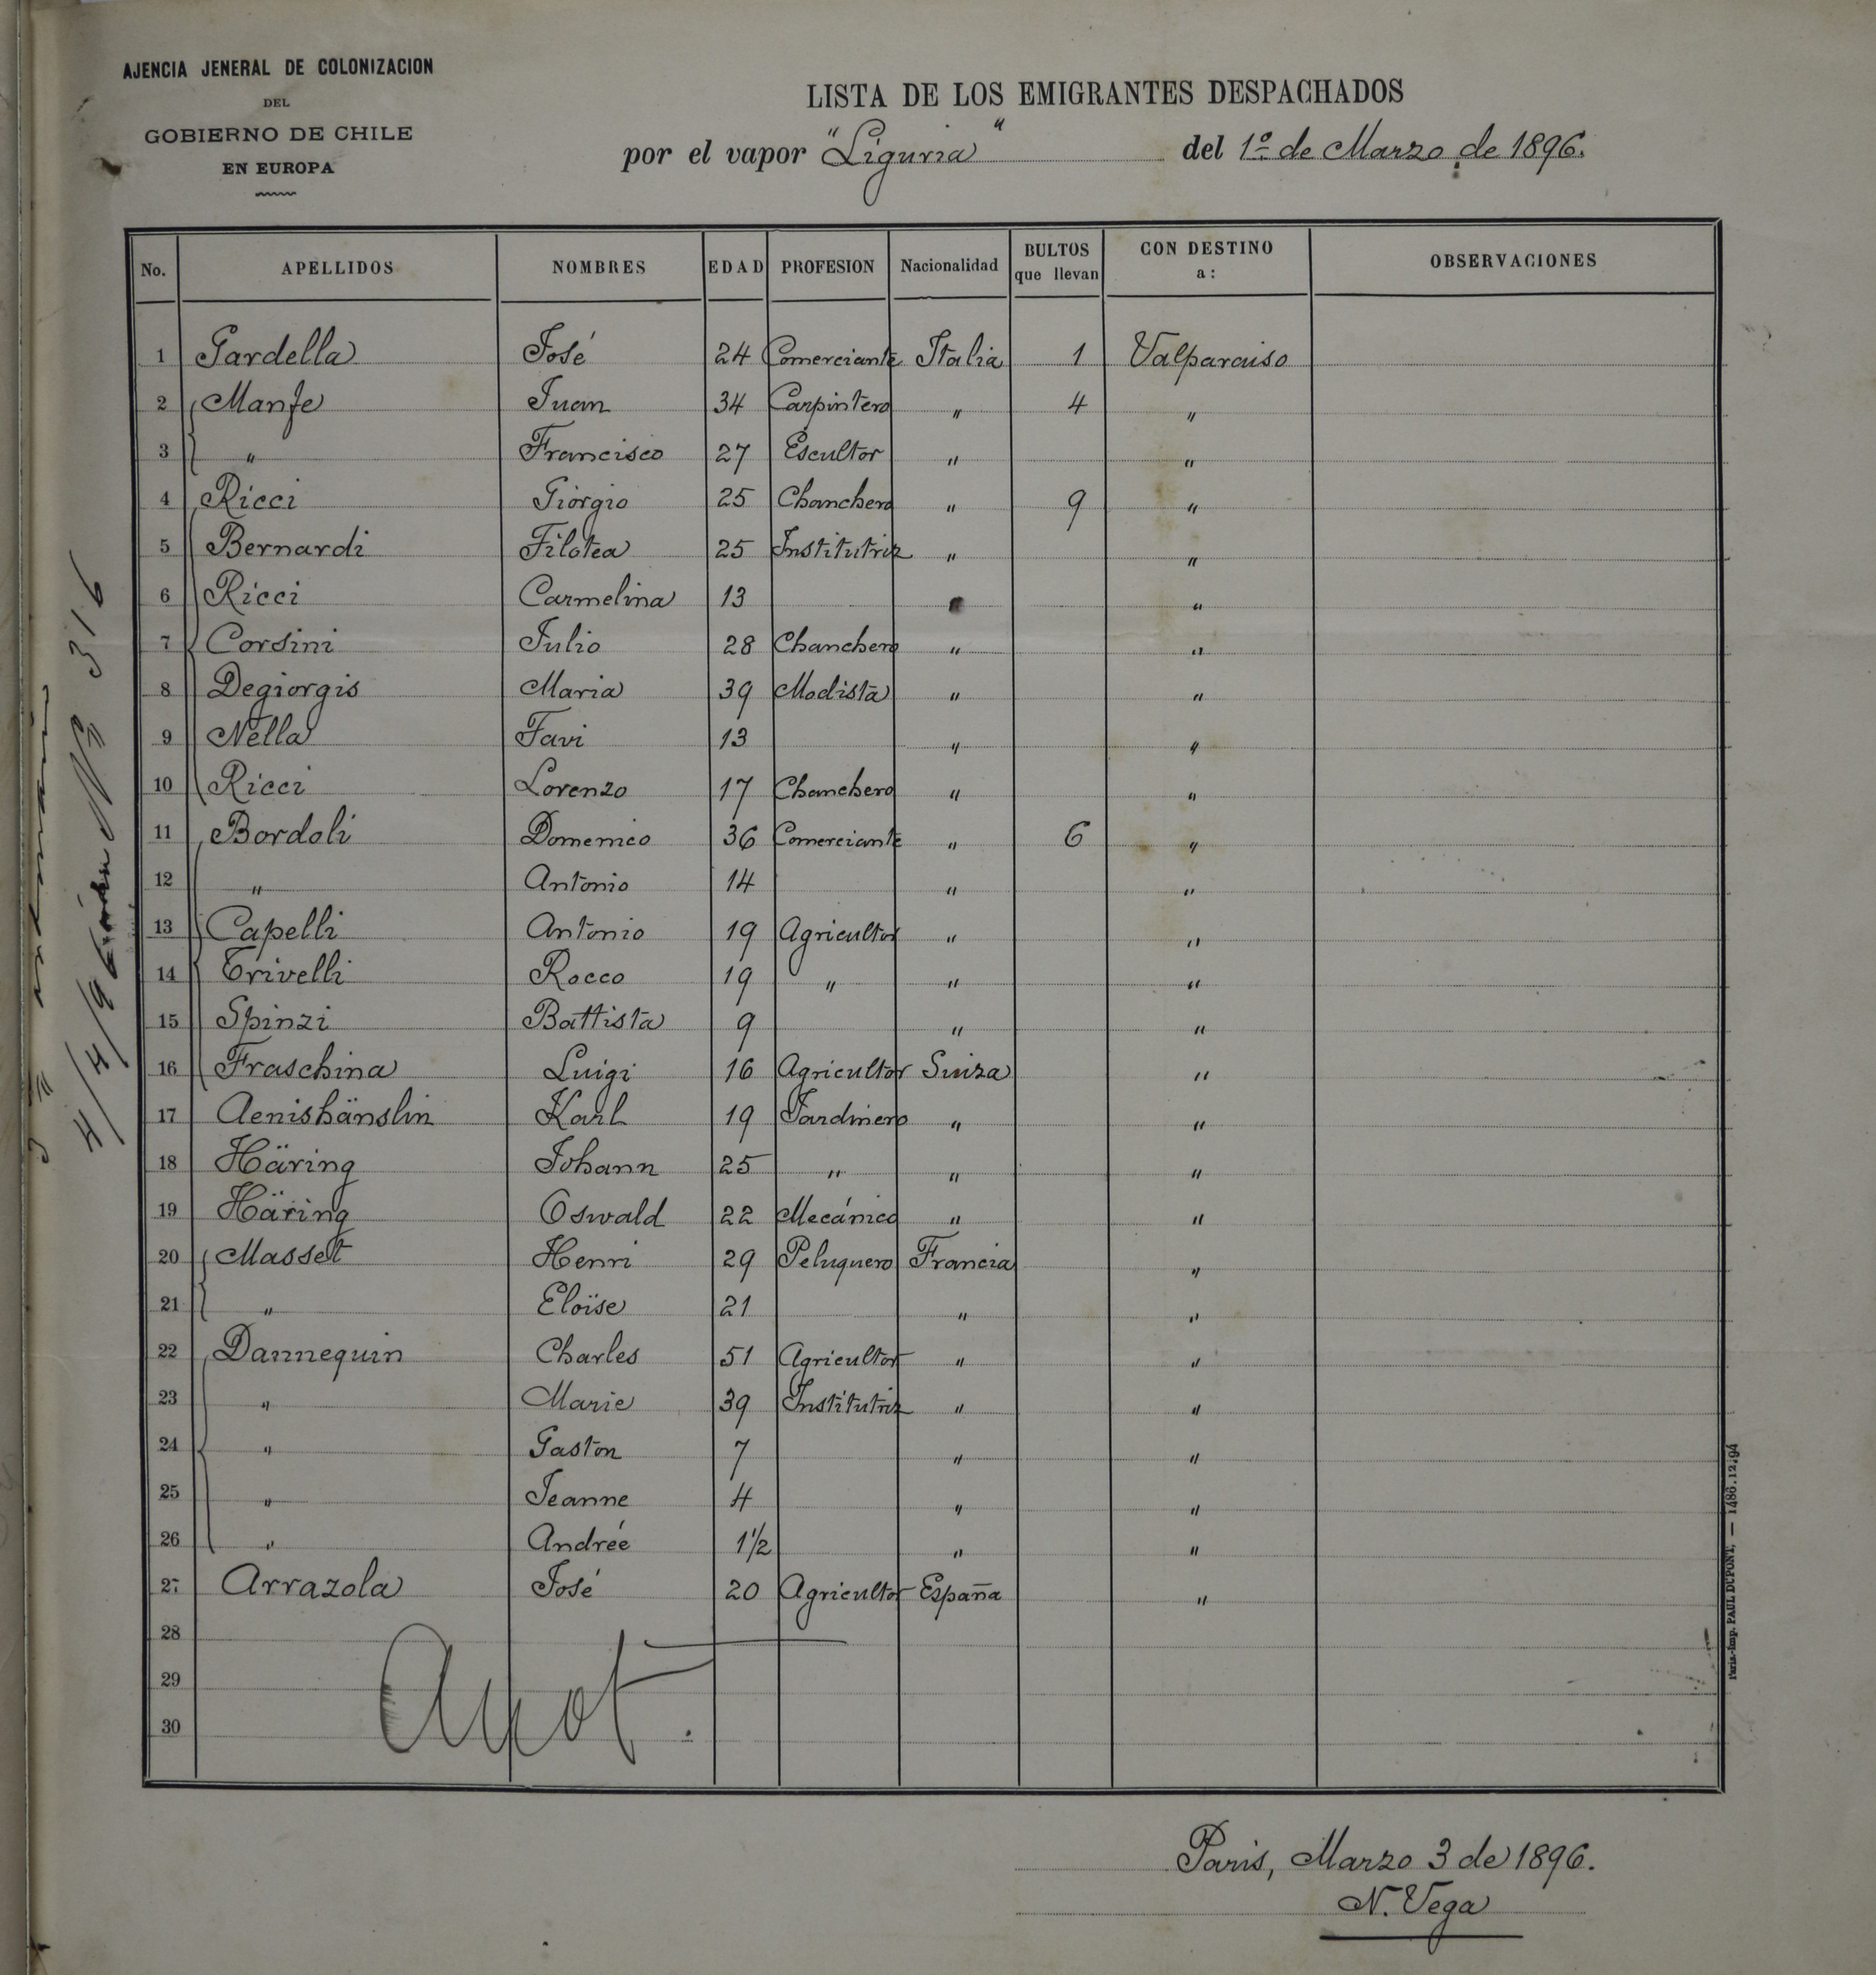 AJENCIA JENERAL DE COLONIZACION
DEL
GOBIERNO DE CHILE
EN EUROPA
LISTA DE LOS EMIGRANTES DESPACHADOS
por el vapor "Liguria" del 1º de Marzo de 1896.
No. APELLIDOS NOMBRES EDAD PROFESION Nacionalidad BULTOS que llevan CON DESTINO a: OBSERVACIONES
1 Gardella José 24 Comerciante Italia 1 Valparaiso
2 Manfe Juan 34 Carpintero " 4 "
3 " Francisco 27 Escultor " "
4 Ricci Giorgio 25 Chanchero " 9 "
5 Bernardi Filotea 25 Institutriz " "
6 Ricci Carmelina 13 " "
7 Corsini Julio 28 Chanchero " "
8 Degiorgis Maria 39 Modista " "
9 Nella Favi 13 " "
10 Ricci Lorenzo 17 Chanchero " "
11 Bordoli Domenico 36 Comerciante " 6 "
12 " Antonio 14 " "
13 Capelli Antonio 19 Agricultor " "
14 Trivelli Rocco 19 " " "
15 Spinzi Battista 9 " "
16 Fraschina Luigi 16 Agricultor Suiza "
17 Aenishänslin Karl 19 Jardinero " "
18 Häring Johann 25 " " "
19 Häring Oswald 22 Mecánico " "
20 Masset Henri 29 Peluquero Francia "
21 " Eloïse 21 " "
22 Dannequin Charles 51 Agricultor " "
23 " Marie 39 Institutriz " "
24 " Gaston 7 " "
25 " Jeanne 4 " "
26 " Andrée 1 1/2 " "
27 Arrazola José 20 Agricultor España "
28
29
30
Paris, Marzo 3 de 1896.
N. Vega
Paris.-Imp. PAUL DUPONT, — 1486.12.94
Nº 316